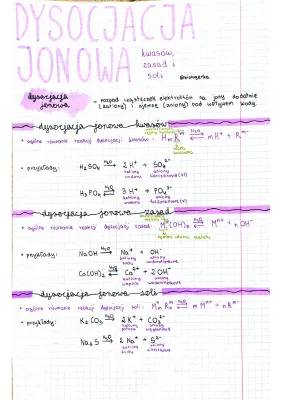 DYSOCJACJA
JONOWA
kwasów,
zasad i
soli
dysocjacja
jonowa
- rozpad cząsteczek elektrolitów na jony dodatnie
(kationy) i ujemne (aniony) pod wpływem wody.
dysocjacja jonowa kwasów
• ogólne równanie reakcji dysocjacji kwasów : HmR ⇌ m H⁺ + Rᵐ⁻
reszta
kwasowa
• przykłady:
H₂SO₄ →H₂O 2 H⁺ + SO₄²⁻
kationy
wodoru
aniony
siarczanowe (VI)
H₃PO₄ ⇌H₂O 3 H⁺ + PO₄³⁻
kationy
wodoru
aniony
fosforanowe (V)
dysocjacja jonowa zasad
• ogólne równanie reakcji dysocjacji zasad: M(OH)n ⇌H₂O Mⁿ⁺ + n OH⁻
symbol atomu metalu
• przykłady:
NaOH →H₂O Na⁺ + OH⁻
kationy
sodu
aniony
wodorotlenkowe
Ca(OH)₂ H₂O Ca²⁺ + 2 OH⁻
kationy
wapnia
aniony
wodorotlenkowe
dysocjacja jonowa soli
• ogólne równanie reakcji dysocjacji soli : MmRn ⇌H₂O m Mⁿ⁺ + n Rᵐ⁻
• przykłady:
K₂CO₃ →H₂O 2 K⁺ + CO₃²⁻
kationy
potasu
aniony
węglanowe
Na₂S →H₂O 2 Na⁺ + S²⁻
kationy
sodu
aniony
siarczkowe